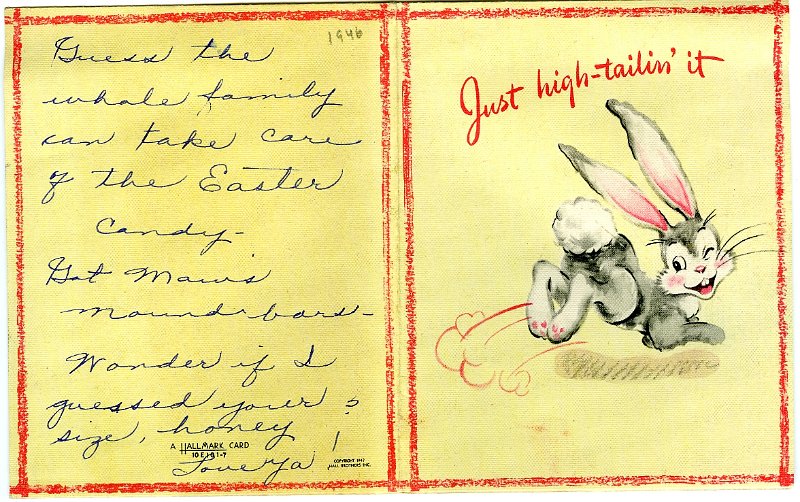 1946
Guess the
whole family
can take care
of the Easter
Candy-
Got Maw's
mound bars-
Wonder if I
guessed your ?
size, honey !
Love ya
A HALLMARK CARD
10E181-7
COPYRIGHT 1947
HALL BROTHERS INC.
Just high-tailin' it